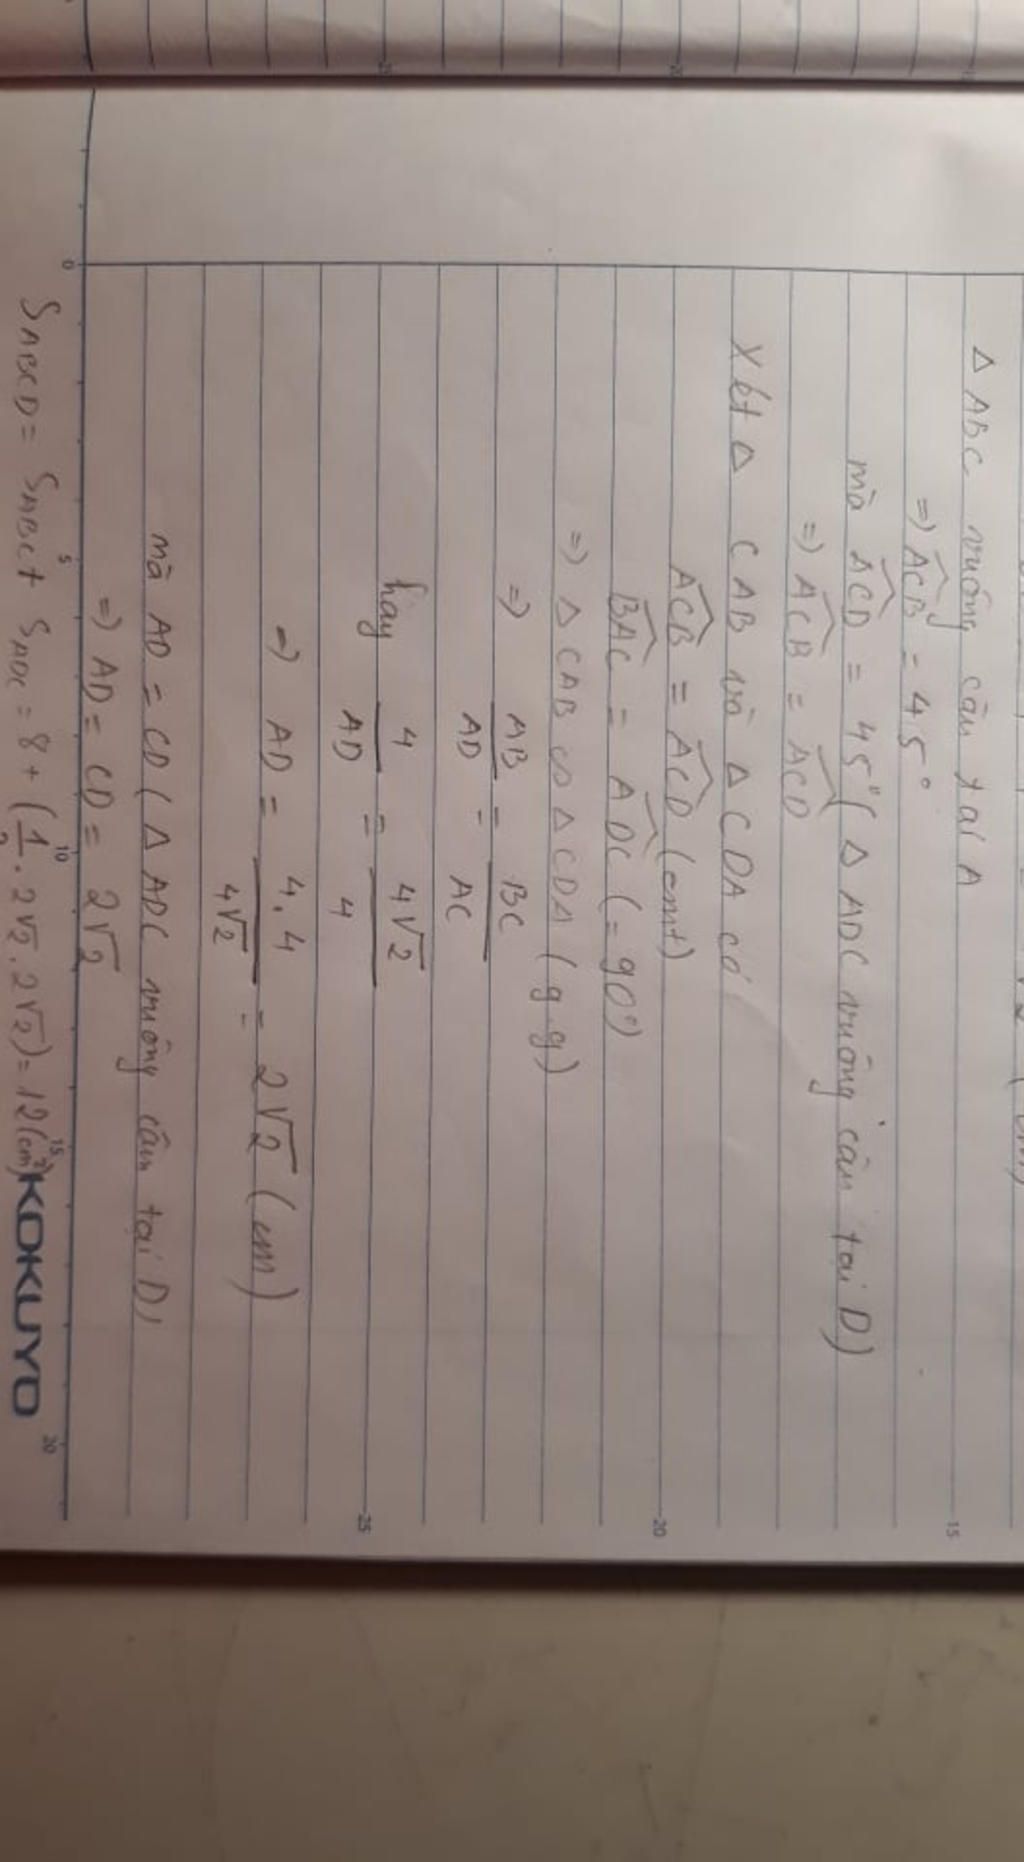 Δ ABC vuông cân tại A
=> \widehat{ACB} = 45°
mà \widehat{ACD} = 45° (Δ ADC vuông cân tại D)
=> \widehat{ACB} = \widehat{ACD}
Xét Δ CAB và Δ CDA có
\widehat{ACB} = \widehat{ACD} (cmt)
\widehat{BAC} = \widehat{ADC} (= 90°)
=> Δ CAB ∽ Δ CDA (g.g)
=> AB/AD = BC/AC
hay 4/AD = 4√2/4
=> AD = 4.4/4√2 = 2√2 (cm)
mà AD = CD (Δ ADC vuông cân tại D)
=> AD = CD = 2√2
S_{ABCD} = S_{ABC} + S_{ADC} = 8 + (1/2 . 2√2 . 2√2) = 12 (cm²)
KOKUYO
0 5 10 15 20
15
20
25